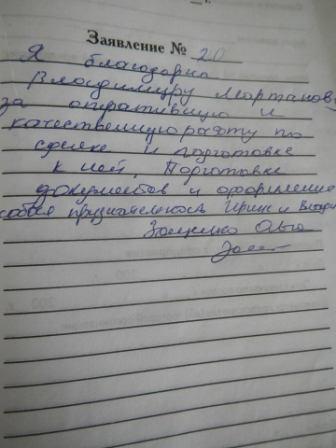 Заявление № 20
Я благодарна
Владимиру Мартанову
за оперативную и
качественную работу по
сделке и подготовке
к ней. Подготовке
документов и оформление
особая признательность Ирине и
Ольга